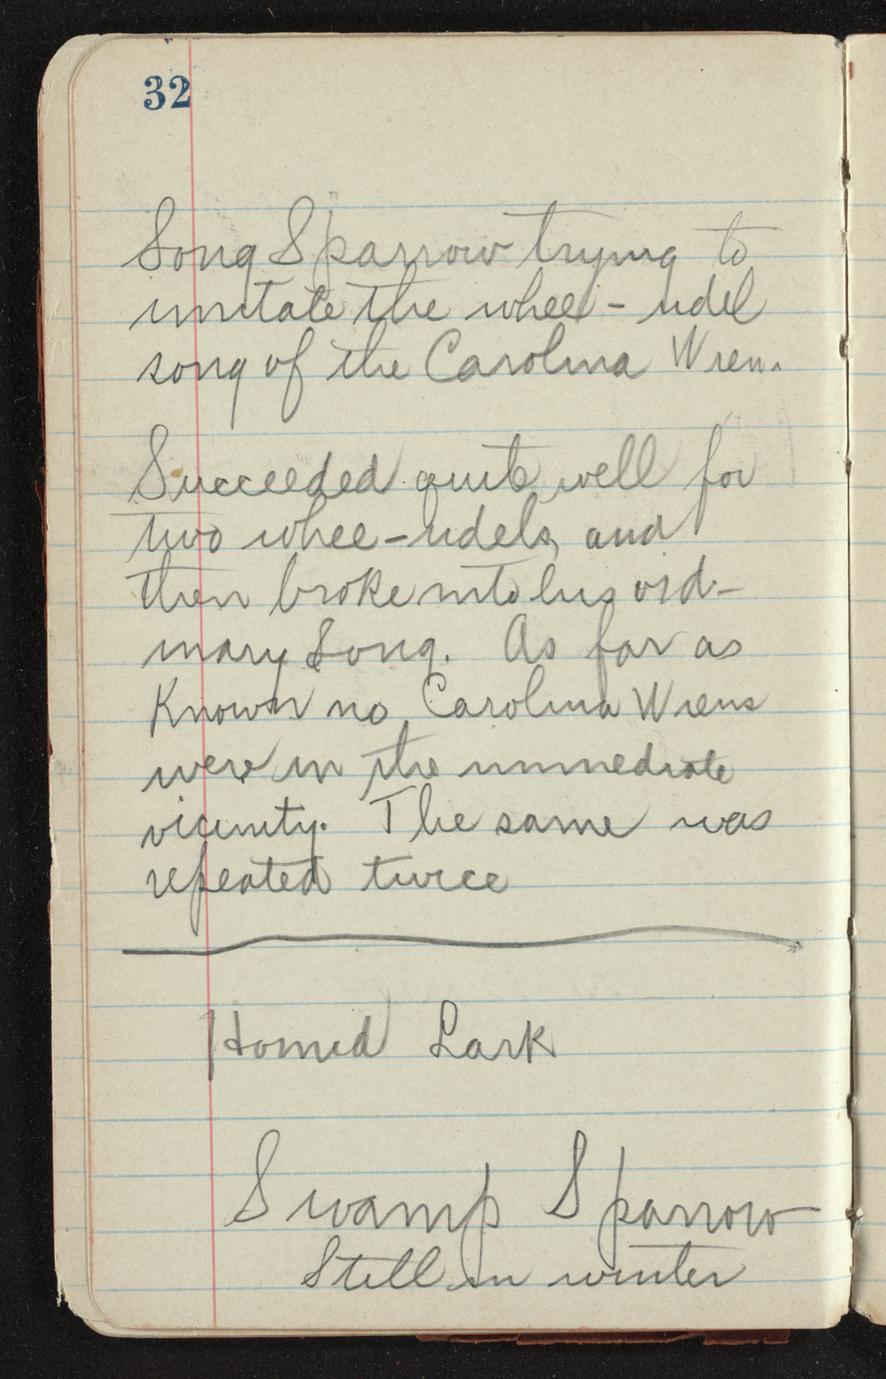 32
Song Sparrow trying to
imitate the whee-udel
song of the Carolina Wren.
Succeeded quite well for
two whee-udels, and
then broke into his ord-
inary Song. As far as
Known no Carolina Wrens
were in the immediate
vicinity. The same was
repeated twice
Horned Lark
Swamp Sparrow
Still in winter